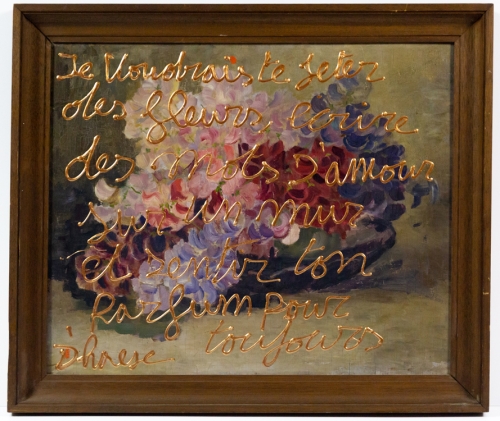 Je Voudrais te jeter
des fleurs écrire
des mots d'amour
sur un mur
et sentir ton
parfum pour
toujours
Dhaese